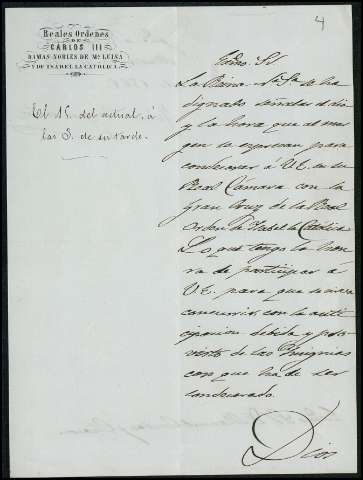 4
Reales Ordenes
DE
CARLOS III
DAMAS NOBLES DE Mª LUISA
Y DE ISABEL LA CATOLICA.
El 15 del actual, á
las 3. de su tarde.
Exmo. Sr.
La Reina N. Sª. se ha
dignado señalar el dia
y la hora que al mar-
gen se expresan para
condecorar á V.E. en su
Real Cámara con la
Gran Cruz de la Real
orden de Isabel la Católica
Lo que tengo la hon-
ra de participar á
V.E. para que se sirva
concurrir con la anti-
cipacion debida y pro-
visto de las Insignias
con que ha de ser
condecorado.
Dios